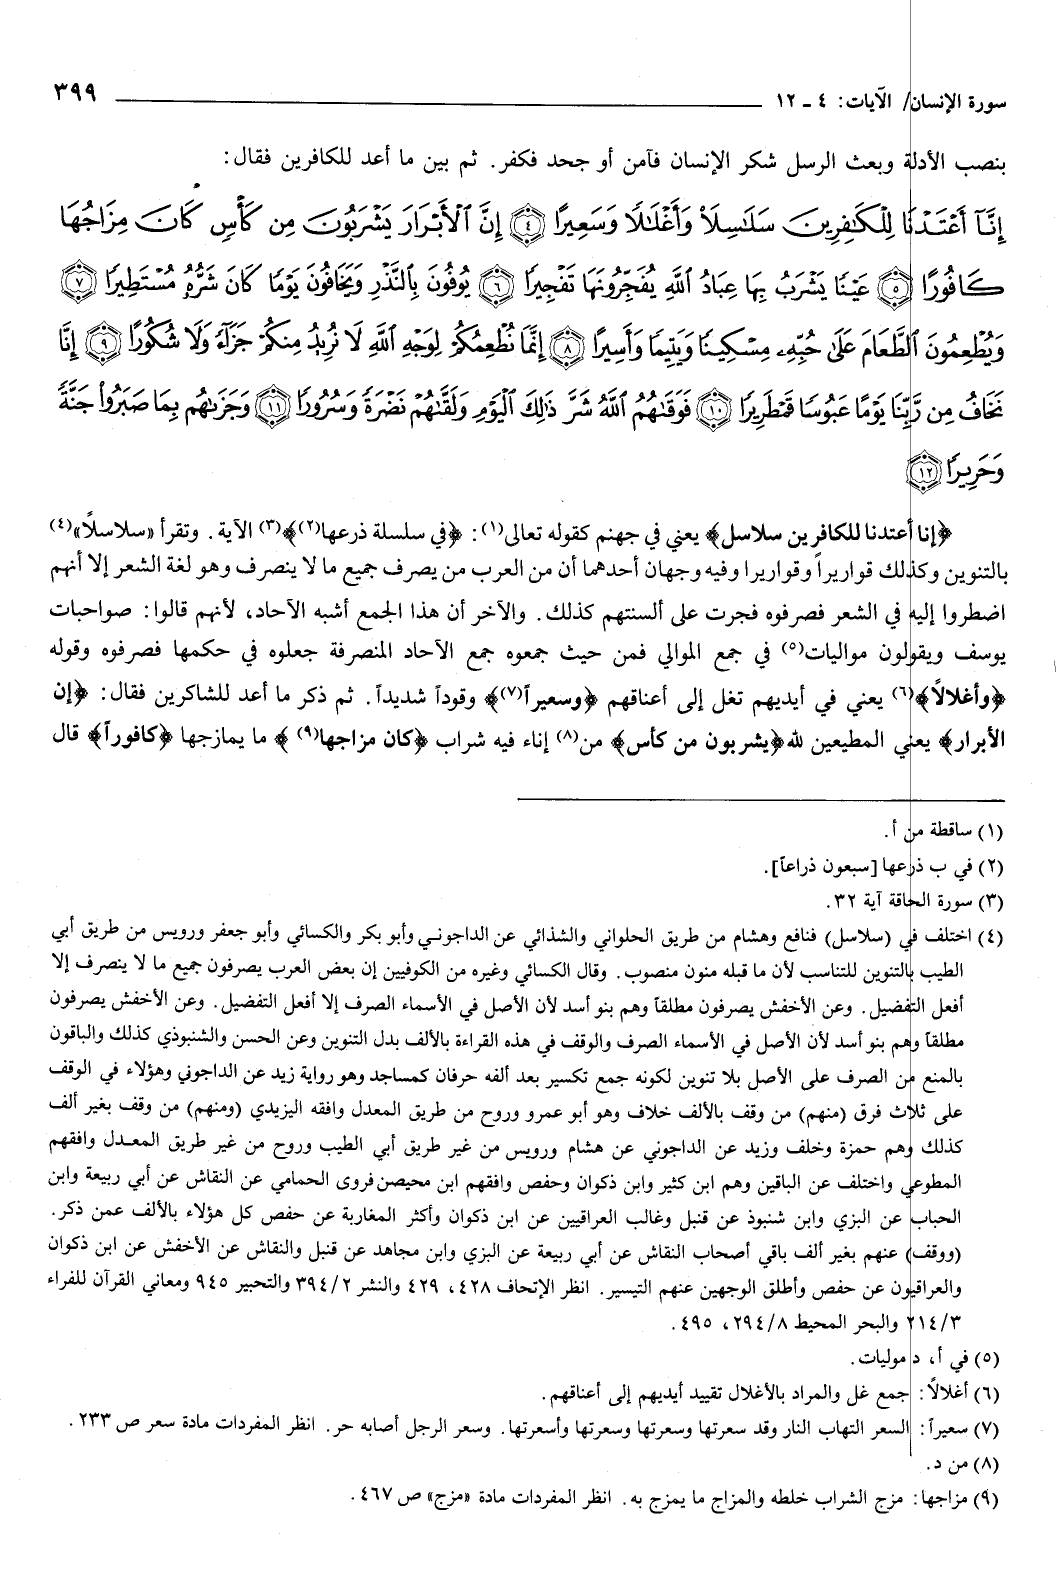 سورة الإنسان/ الآيات: ٤ ـ ١٢ ٣٩٩
بنصب الأدلة وبعث الرسل شكر الإنسان فآمن أو جحد فكفر. ثم بين ما أعد للكافرين فقال:
إِنَّآ أَعْتَدْنَا لِلْكَـٰفِرِينَ سَلَـٰسِلَا۟ وَأَغْلَـٰلًا وَسَعِيرًا ﴿٤﴾ إِنَّ ٱلْأَبْرَارَ يَشْرَبُونَ مِن كَأْسٍ كَانَ مِزَاجُهَا
كَافُورًا ﴿٥﴾ عَيْنًا يَشْرَبُ بِهَا عِبَادُ ٱللَّهِ يُفَجِّرُونَهَا تَفْجِيرًا ﴿٦﴾ يُوفُونَ بِٱلنَّذْرِ وَيَخَافُونَ يَوْمًا كَانَ شَرُّهُۥ مُسْتَطِيرًا ﴿٧﴾
وَيُطْعِمُونَ ٱلطَّعَامَ عَلَىٰ حُبِّهِۦ مِسْكِينًا وَيَتِيمًا وَأَسِيرًا ﴿٨﴾ إِنَّمَا نُطْعِمُكُمْ لِوَجْهِ ٱللَّهِ لَا نُرِيدُ مِنكُمْ جَزَآءً وَلَا شُكُورًا ﴿٩﴾ إِنَّا
نَخَافُ مِن رَّبِّنَا يَوْمًا عَبُوسًا قَمْطَرِيرًا ﴿١٠﴾ فَوَقَىٰهُمُ ٱللَّهُ شَرَّ ذَٰلِكَ ٱلْيَوْمِ وَلَقَّىٰهُمْ نَضْرَةً وَسُرُورًا ﴿١١﴾ وَجَزَىٰهُم بِمَا صَبَرُوا۟ جَنَّةً
وَحَرِيرًا ﴿١٢﴾
﴿إنا أعتدنا للكافرين سلاسل﴾ يعني في جهنم كقوله تعالى(١): ﴿في سلسلة ذرعها(٢)﴾(٣) الآية. وتقرأ «سلاسلًا»(٤)
بالتنوين وكذلك قواريراً وقواريرا وفيه وجهان أحدهما أن من العرب من يصرف جميع ما لا ينصرف وهو لغة الشعر إلا أنهم
اضطروا إليه في الشعر فصرفوه فجرت على ألسنتهم كذلك. والآخر أن هذا الجمع أشبه الآحاد، لأنهم قالوا: صواحبات
يوسف ويقولون مواليات(٥) في جمع الموالي فمن حيث جمعوه جمع الآحاد المنصرفة جعلوه في حكمها فصرفوه وقوله
﴿وأغلالاً﴾(٦) يعني في أيديهم تغل إلى أعناقهم ﴿وسعيراً(٧)﴾ وقوداً شديداً. ثم ذكر ما أعد للشاكرين فقال: ﴿إن
الأبرار﴾ يعني المطيعين لله ﴿يشربون من كأس﴾ من(٨) إناء فيه شراب ﴿كان مزاجها(٩)﴾ ما يمازجها ﴿كافوراً﴾ قال
(١) ساقطة من أ.
(٢) في ب ذرعها [سبعون ذراعاً].
(٣) سورة الحاقة آية ٣٢.
(٤) اختلف في (سلاسل) فنافع وهشام من طريق الحلواني والشذائي عن الداجوني وأبو بكر والكسائي وأبو جعفر ورويس من طريق أبي
الطيب بالتنوين للتناسب لأن ما قبله منون منصوب. وقال الكسائي وغيره من الكوفيين إن بعض العرب يصرفون جميع ما لا ينصرف إلا
أفعل التفضيل. وعن الأخفش يصرفون مطلقاً وهم بنو أسد لأن الأصل في الأسماء الصرف إلا أفعل التفضيل. وعن الأخفش يصرفون
مطلقاً وهم بنو أسد لأن الأصل في الأسماء الصرف والوقف في هذه القراءة بالألف بدل التنوين وعن الحسن والشنبوذي كذلك والباقون
بالمنع من الصرف على الأصل بلا تنوين لكونه جمع تكسير بعد ألفه حرفان كمساجد وهو رواية زيد عن الداجوني وهؤلاء في الوقف
على ثلاث فرق (منهم) من وقف بالألف خلاف وهو أبو عمرو وروح من طريق المعدل وافقه اليزيدي (ومنهم) من وقف بغير ألف
كذلك وهم حمزة وخلف وزيد عن الداجوني عن هشام ورويس من غير طريق أبي الطيب وروح من غير طريق المعدل وافقهم
المطوعي واختلف عن الباقين وهم ابن كثير وابن ذكوان وحفص وافقهم ابن محيصن فروى الحمامي عن النقاش عن أبي ربيعة وابن
الحباب عن البزي وابن شنبوذ عن قنبل وغالب العراقيين عن ابن ذكوان وأكثر المغاربة عن حفص كل هؤلاء بالألف عمن ذكر.
(ووقف) عنهم بغير ألف باقي أصحاب النقاش عن أبي ربيعة عن البزي وابن مجاهد عن قنبل والنقاش عن الأخفش عن ابن ذكوان
والعراقيون عن حفص وأطلق الوجهين عنهم التيسير. انظر الإتحاف ٤٢٨، ٤٢٩ والنشر ٣٩٤/٢ والتحبير ٩٤٥ ومعاني القرآن للفراء
٢١٤/٣ والبحر المحيط ٢٩٤/٨، ٤٩٥.
(٥) في أ، د موليات.
(٦) أغلالاً: جمع غل والمراد بالأغلال تقييد أيديهم إلى أعناقهم.
(٧) سعيراً: السعر التهاب النار وقد سعرتها وسعرتها وسعرتها وأسعرتها. وسعر الرجل أصابه حر. انظر المفردات مادة سعر ص ٢٣٣.
(٨) من د.
(٩) مزاجها: مزج الشراب خلطه والمزاج ما يمزج به. انظر المفردات مادة «مزج» ص ٤٦٧.